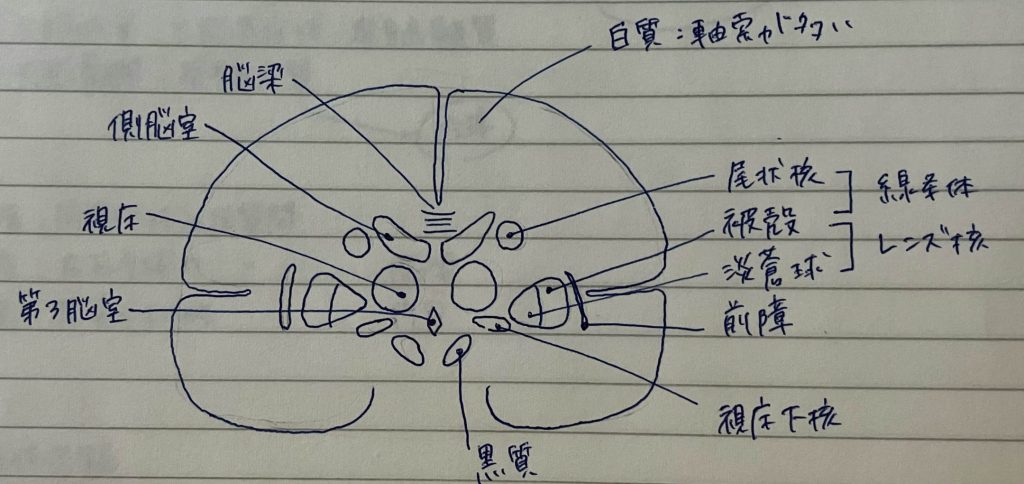 白質：軸索が多い
脳梁
側脳室
尾状核
線条体
視床
被殻
レンズ核
淡蒼球
第3脳室
前障
視床下核
黒質